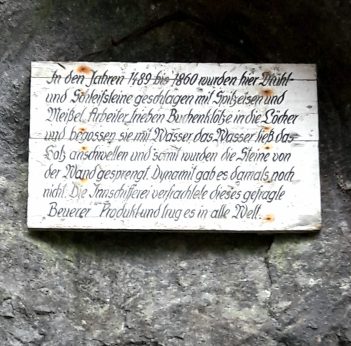 In den Jahren 1489 bis 1860 wurden hier Mühl-
und Schleifsteine geschlagen mit Spitzeisen und
Meißel. Arbeiter trieben Buchenklötze in die Löcher
und begossen sie mit Wasser das Wasser ließ das
Holz anschwellen und somit wurden die Steine von
der Wand gesprengt. Dynamit gab es damals noch
nicht. Die Innschifferei verfrachtete dieses gefragte
Beuerer Produkt und trug es in alle Welt.